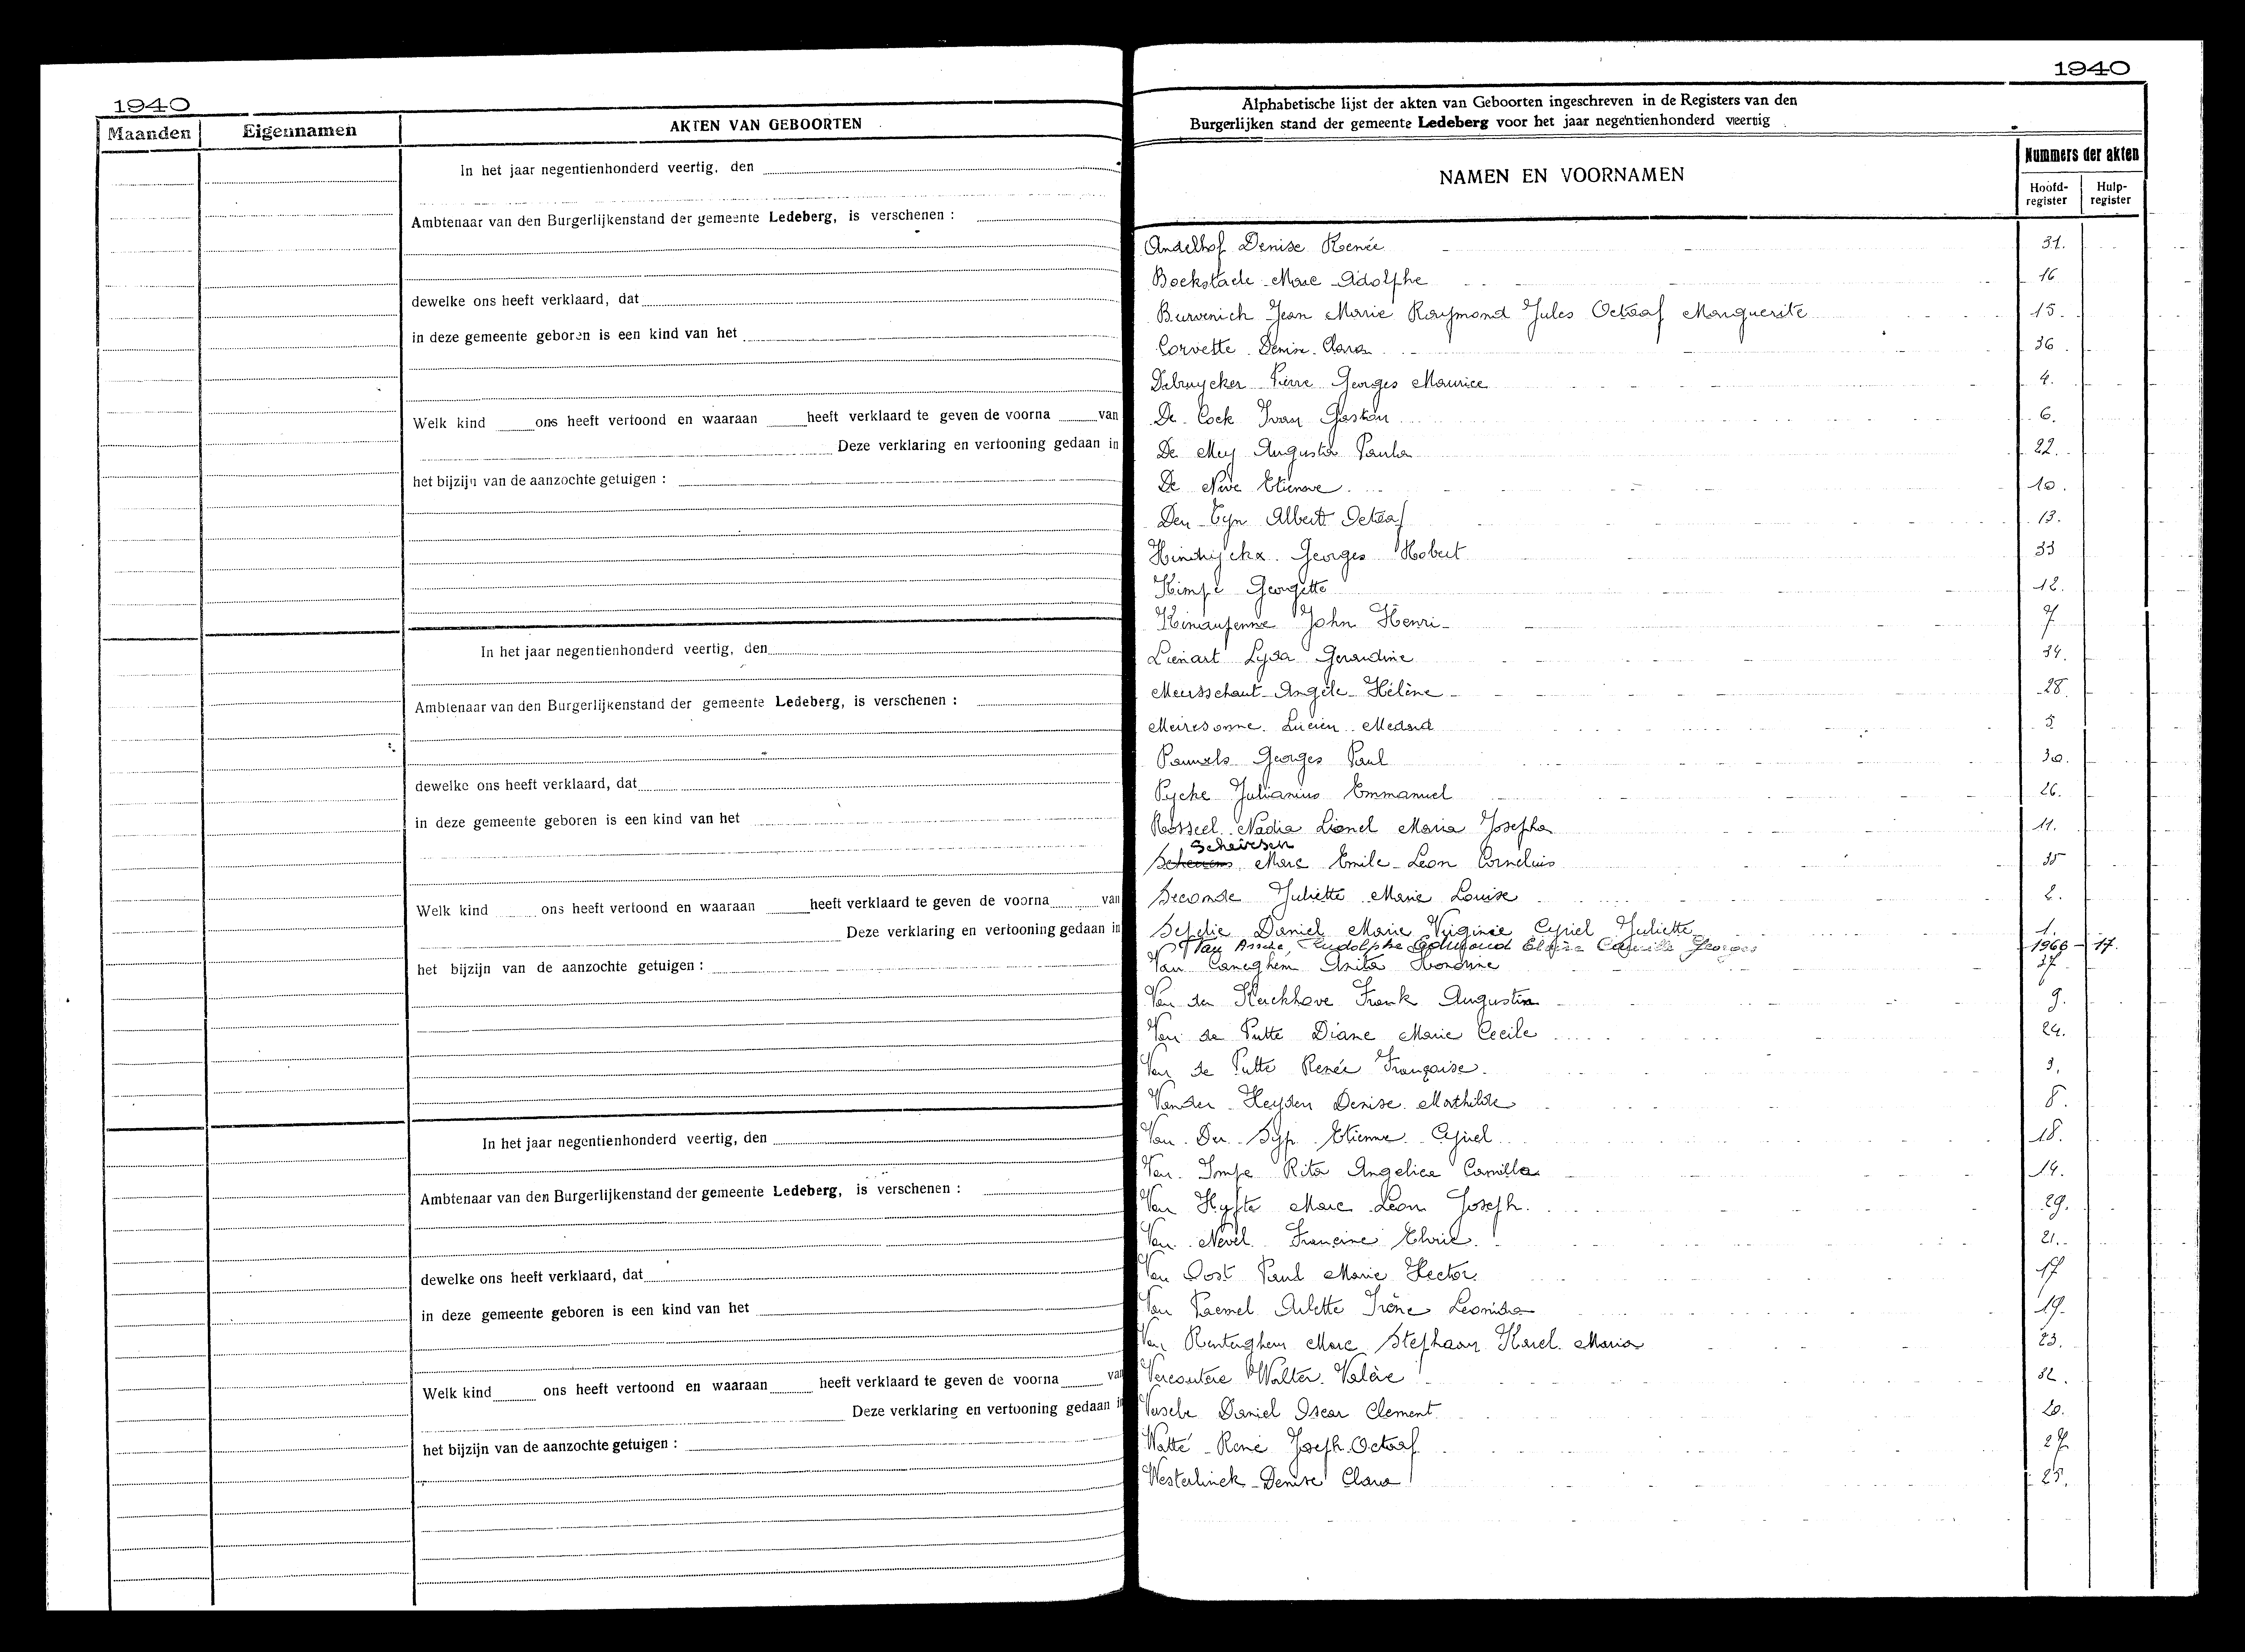 1940
Maanden Eigennamen AKTEN VAN GEBOORTEN
In het jaar negentienhonderd veertig, den
Ambtenaar van den Burgerlijkenstand der gemeente Ledeberg, is verschenen :
dewelke ons heeft verklaard, dat
in deze gemeente geboren is een kind van het
Welk kind ons heeft vertoond en waaraan heeft verklaard te geven de voorna van
Deze verklaring en vertooning gedaan in
het bijzijn van de aanzochte getuigen :
In het jaar negentienhonderd veertig, den
Ambtenaar van den Burgerlijkenstand der gemeente Ledeberg, is verschenen :
dewelke ons heeft verklaard, dat
in deze gemeente geboren is een kind van het
Welk kind ons heeft vertoond en waaraan heeft verklaard te geven de voorna van
Deze verklaring en vertooning gedaan in
het bijzijn van de aanzochte getuigen :
In het jaar negentienhonderd veertig, den
Ambtenaar van den Burgerlijkenstand der gemeente Ledeberg, is verschenen :
dewelke ons heeft verklaard, dat
in deze gemeente geboren is een kind van het
Welk kind ons heeft vertoond en waaraan heeft verklaard te geven de voorna van
Deze verklaring en vertooning gedaan in
het bijzijn van de aanzochte getuigen :
1940
Alphabetische lijst der akten van Geboorten ingeschreven in de Registers van den
Burgerlijken stand der gemeente Ledeberg voor het jaar negentienhonderd veertig
NAMEN EN VOORNAMEN
Nummers der akten
Hoofd-register Hulp-register
Andelhof Denise Renée 31.
Bockstaele Marc Adolphe 16
Burvenich Jean Marie Raymond Jules Octaaf Marguerite 15.
Corvette Denise Clara 36
Debruycker Pierre Georges Maurice 4.
De Cock Ivan Gaston 6.
De Mey Augusta Paula 22.
De Nève Etienne 10.
Den Tyn Albert Octaaf 13.
Hindryckx Georges Robert 33
Kimpe Georgette 12.
John Henri 7
Lienart Lysa Gerardine 34.
Meersschaut Angèle Hélène 28.
Meiresonne Lucien Medard 5
Pauwels Georges Paul 30.
Pycke Julianius Emmanuel 26.
Rosseel Nadia Lionel Maria Josepha 11.
Scheirsen
Marc Emile Leon Cornelius 35
Seconde Juliette Marie Louise 2.
Daniel Marie Virginie Cyriel Juliette 1.
Van Assche, Rudolphe Edmond Camille Georges 1966 - 17.
Van Caneghem Anita Hondrine 37
Van den Kerckhove Frank Augustin 9.
Van de Putte Diane Marie Cecile 24.
Van de Putte Renée Françoise. 3.
Vander Heyden Denise Mathilde 8.
Van Der Syp Etienne Cyriel 18.
Van Impe Rita Angelica Camilla 14.
Van Hyfte Marc Léon Joseph. 29.
Van Nevel Francine 21.
Van Oost Paul Marie Hector. 17
Van Paemel Arlette Irène Leonida 19.
Van Renterghem Marc Stephaan Karel Maria 23.
Vercoutere Walter Valère 32.
Daniel Oscar Clement 20.
Watté René Joseph Octaaf 27
Westerlinck Denise Clara 25.